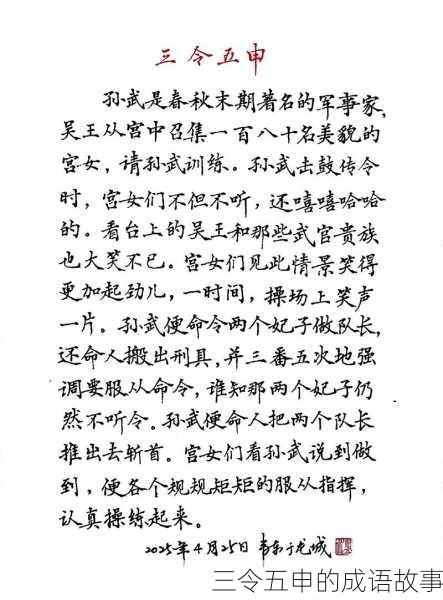 三令五申
孙武是春秋末期著名的军事家,
吴王从宫中召集一百八十名美貌的
宫女，请孙武训练。孙武击鼓传令
时，宫女们不但不听，还嘻嘻哈哈
的。看台上的吴王和那些武官贵族
也大笑不已。宫女们见此情景笑得
更加起劲儿，一时间，操场上笑声
一片。孙武便命令两个妃子做队长,
还命人搬出刑具,并三番五次地强
调要服从命令，谁知那两个妃子仍
然不听令。孙武便命人把两个队长
推出去斩首。宫女们看孙武说到做
到，便各个规规矩矩的服从指挥，
认真操练起来。
2025年4月25日 于龙城
三令五申的成语故事